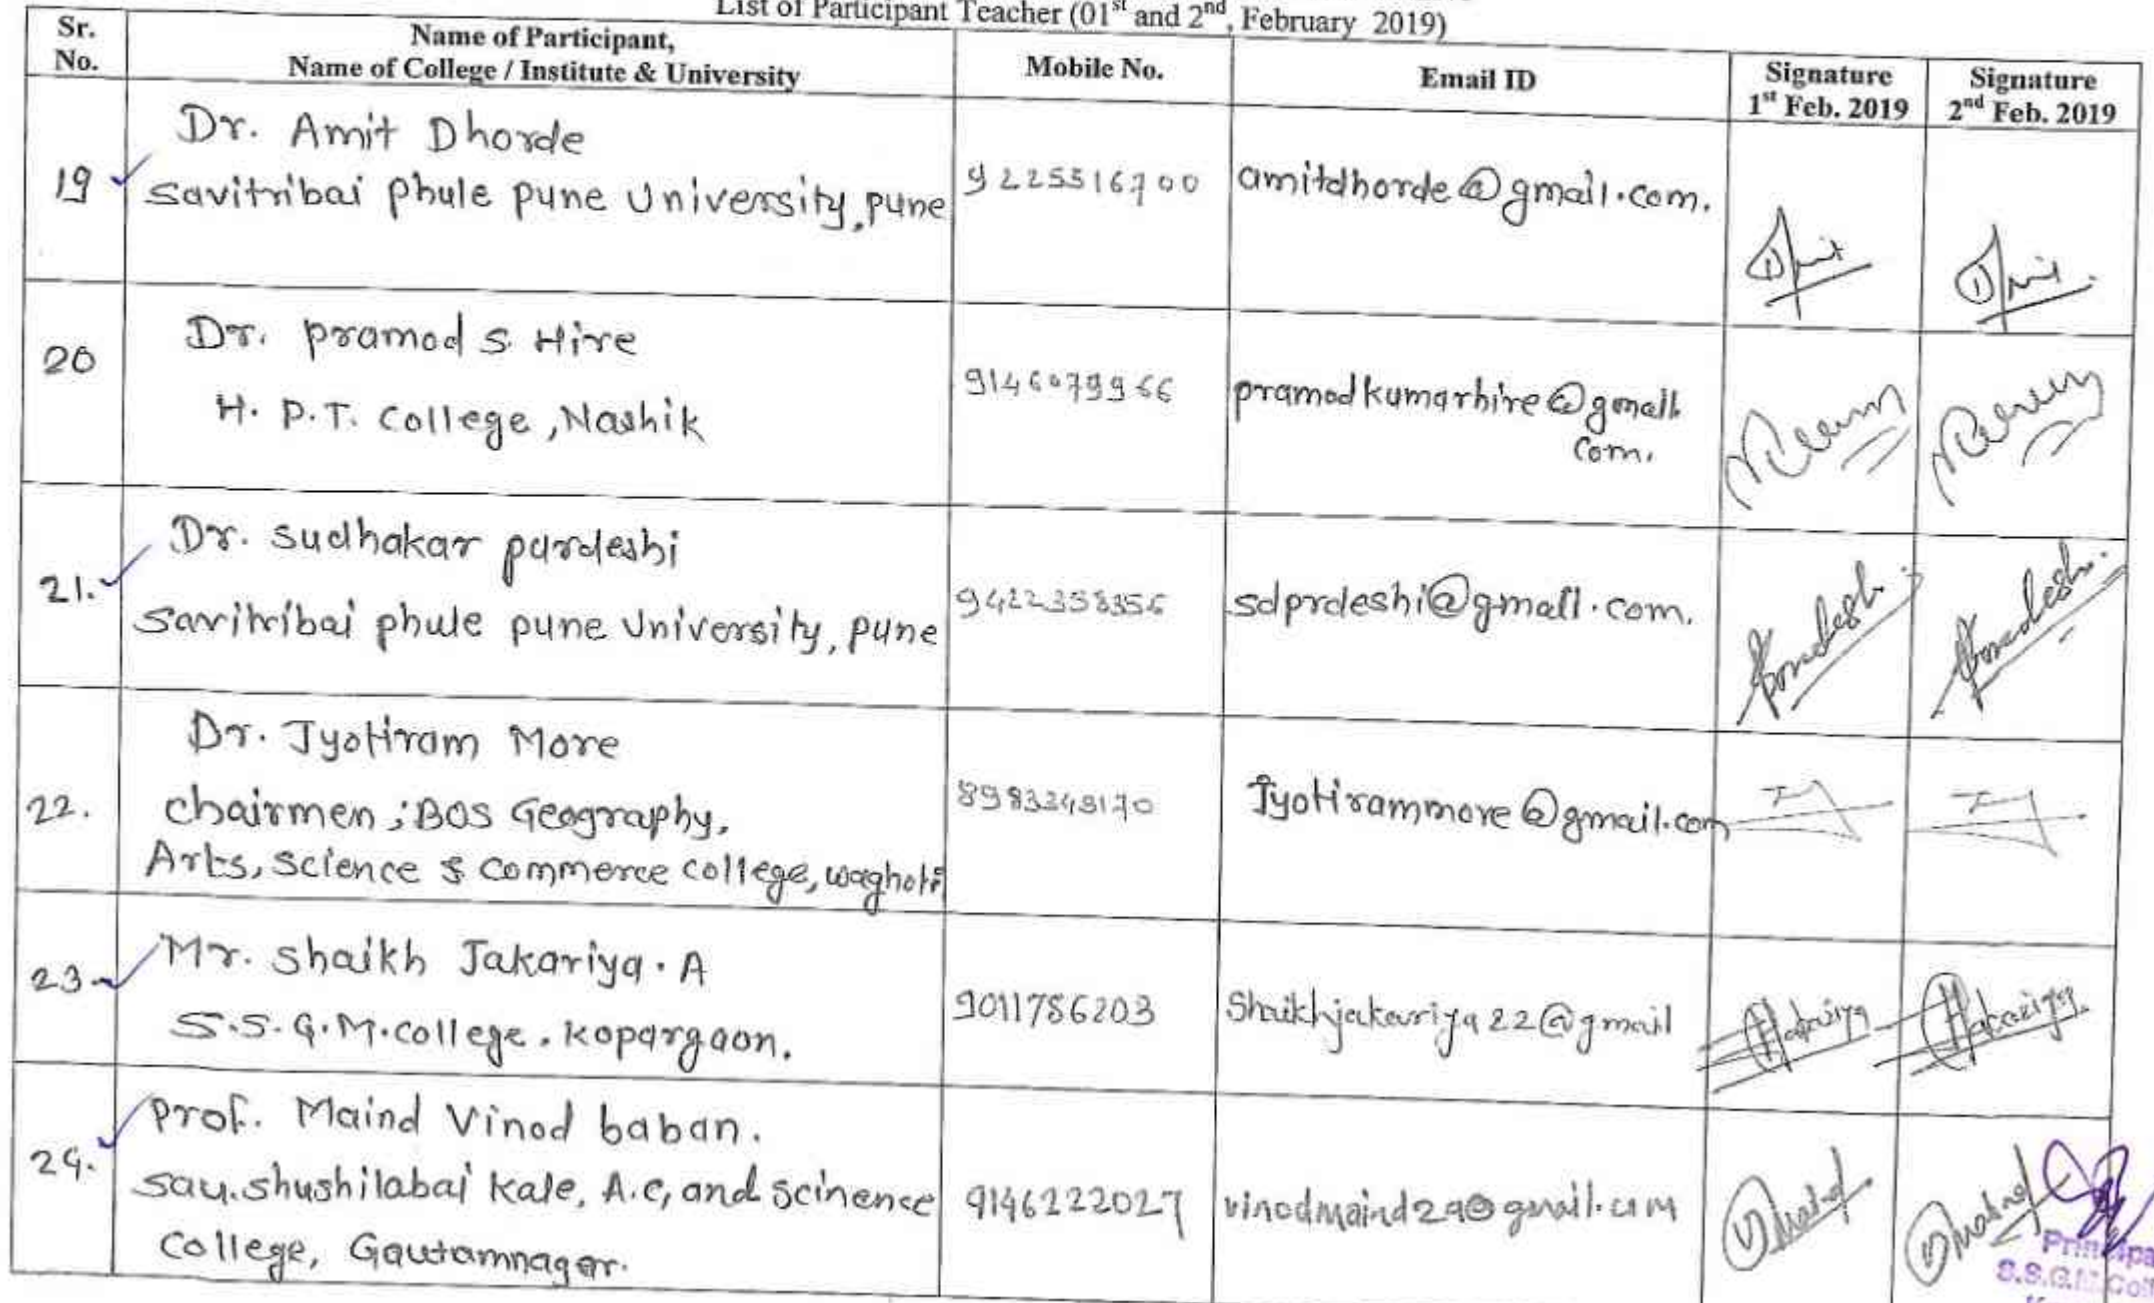 List of Participant Teacher (01st and 2nd, February 2019)
Sr. No.
Name of Participant,
Name of College / Institute & University
Mobile No.
Email ID
Signature
1st Feb. 2019
Signature
2nd Feb. 2019
19
Dr. Amit Dhorde
Savitribai phule pune University, pune
9225516700
amitdhorde@gmail.com.
20
Dr. pramod S Hire
H. P.T. College, Nashik
9146079966
pramodkumarhire@gmail.
com.
21.
Dr. Sudhakar pardeshi
Savitribai phule pune University, pune
9422358356
sdprdeshi@gmail.com.
22.
Dr. Jyotiram More
chairmen; BOS Geography,
Arts, Science & Commerce college, wagholi
Jyotirammore@gmail.com
23
Mr. Shaikh Jakariya. A
S.S.G.M. college. kopargaon.
9011786203
Shaikhjakariya22@gmail
24.
Prof. Maind Vinod baban.
Sau. Shushilabai Kale, A.C, and Scinence
College, Gautamnagar.
9146222027
vinodmaind29@gmail.com
Principa
S.S.G.M.Col